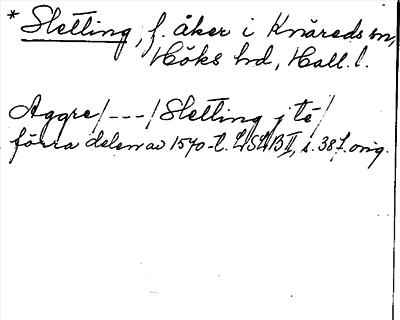 * Sletting, f. åker i Knäreds sn,
Höks hd, Hall. l.
Aggre/---/Sletting j té/
förra delen av 1570-t. LSLB II, s. 387. orig.